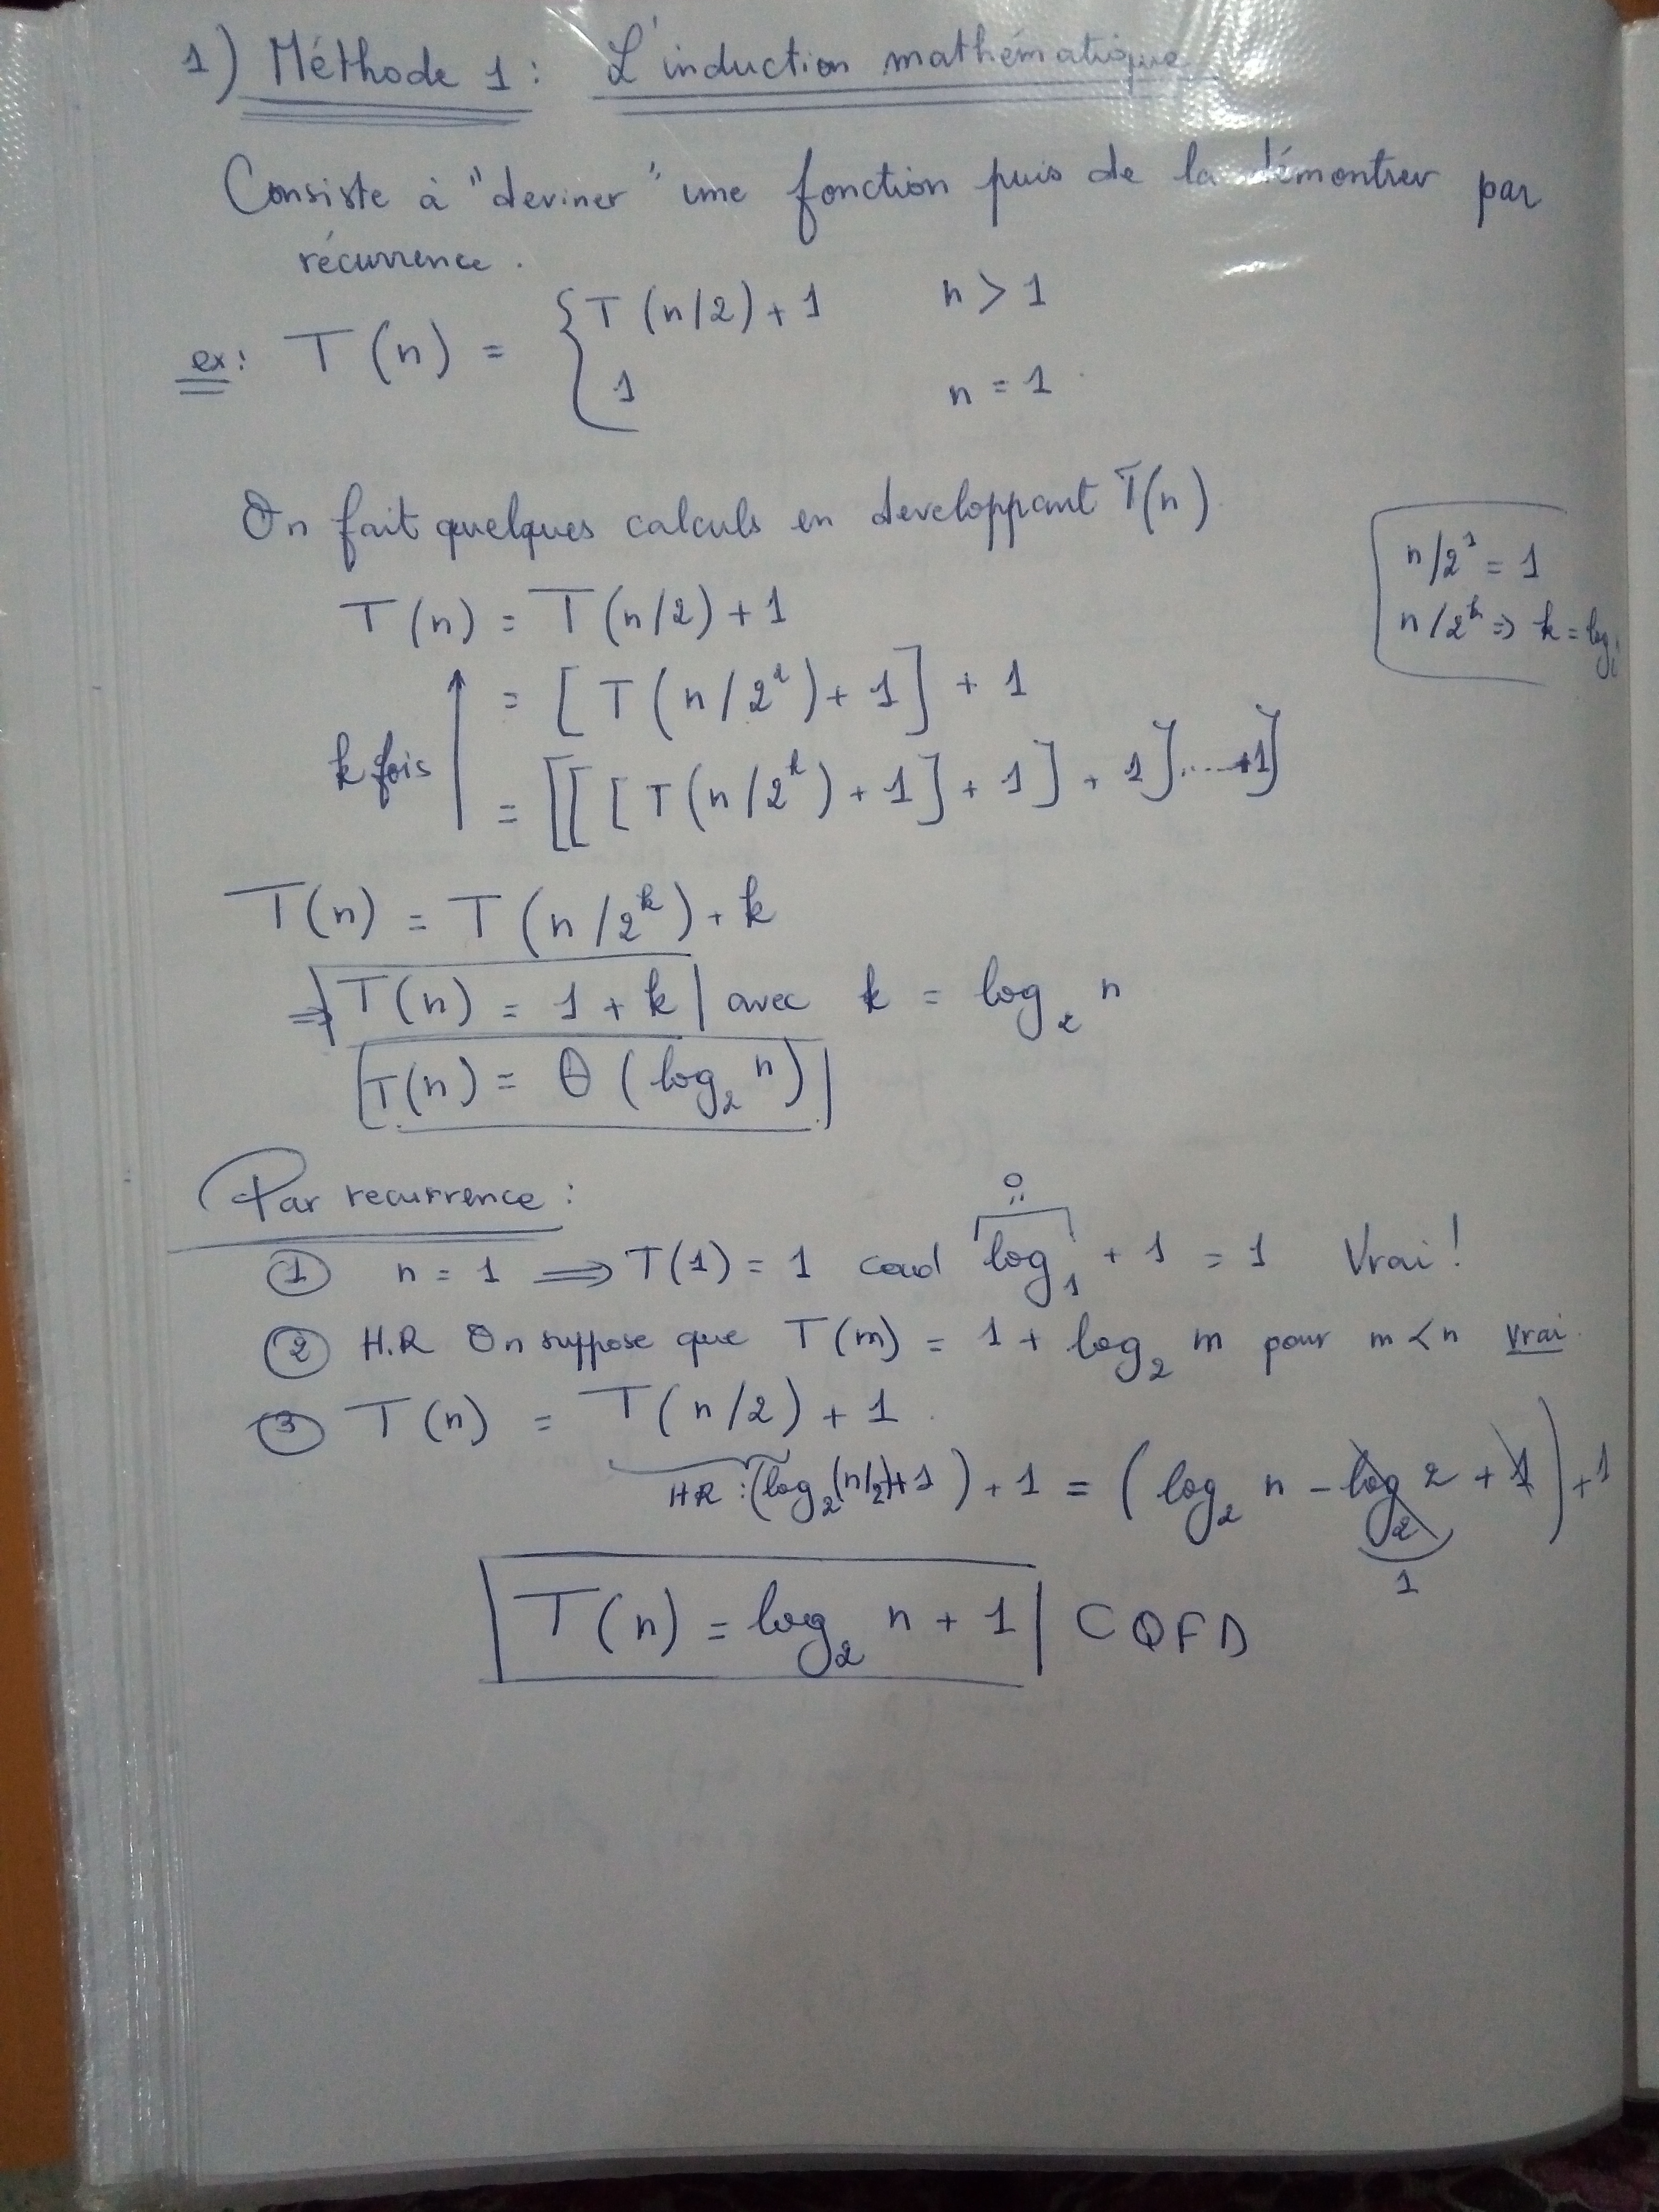 1) Méthode 1 : L'induction mathématique
Consiste à "deviner" une fonction puis de la démontrer par
récurrence.
ex: T(n) = { T(n/2) + 1 n > 1
1 n = 1
On fait quelques calculs en developpant T(n)
n/2¹ = 1
n/2ᵏ => k = log
T(n) = T(n/2) + 1
= [T(n/2²) + 1] + 1
k fois
= [[[T(n/2ᵏ) + 1] + 1] + 1]....+1]
T(n) = T(n/2ᵏ) + k
=> T(n) = 1 + k avec k = log₂ n
T(n) = Θ(log₂ n)
Par recurrence :
0
① n = 1 => T(1) = 1 cad log₁ + 1 = 1 Vrai !
② H.R On suppose que T(m) = 1 + log₂ m pour m < n vrai.
③ T(n) = T(n/2) + 1.
HR : (log₂(n/2)+1) + 1 = (log₂ n - log₂ 2 + 1) + 1
1
T(n) = log₂ n + 1 CQFD